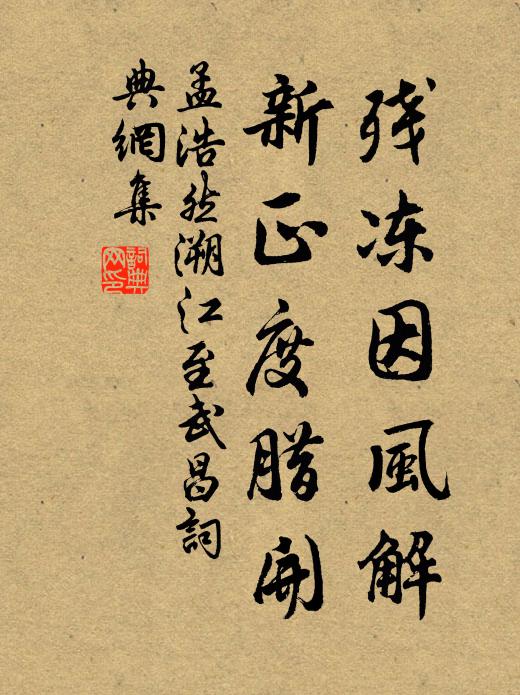 残冻因風解
新正度腊開
孟浩然溯江至武昌詞
典網集
詞典网印